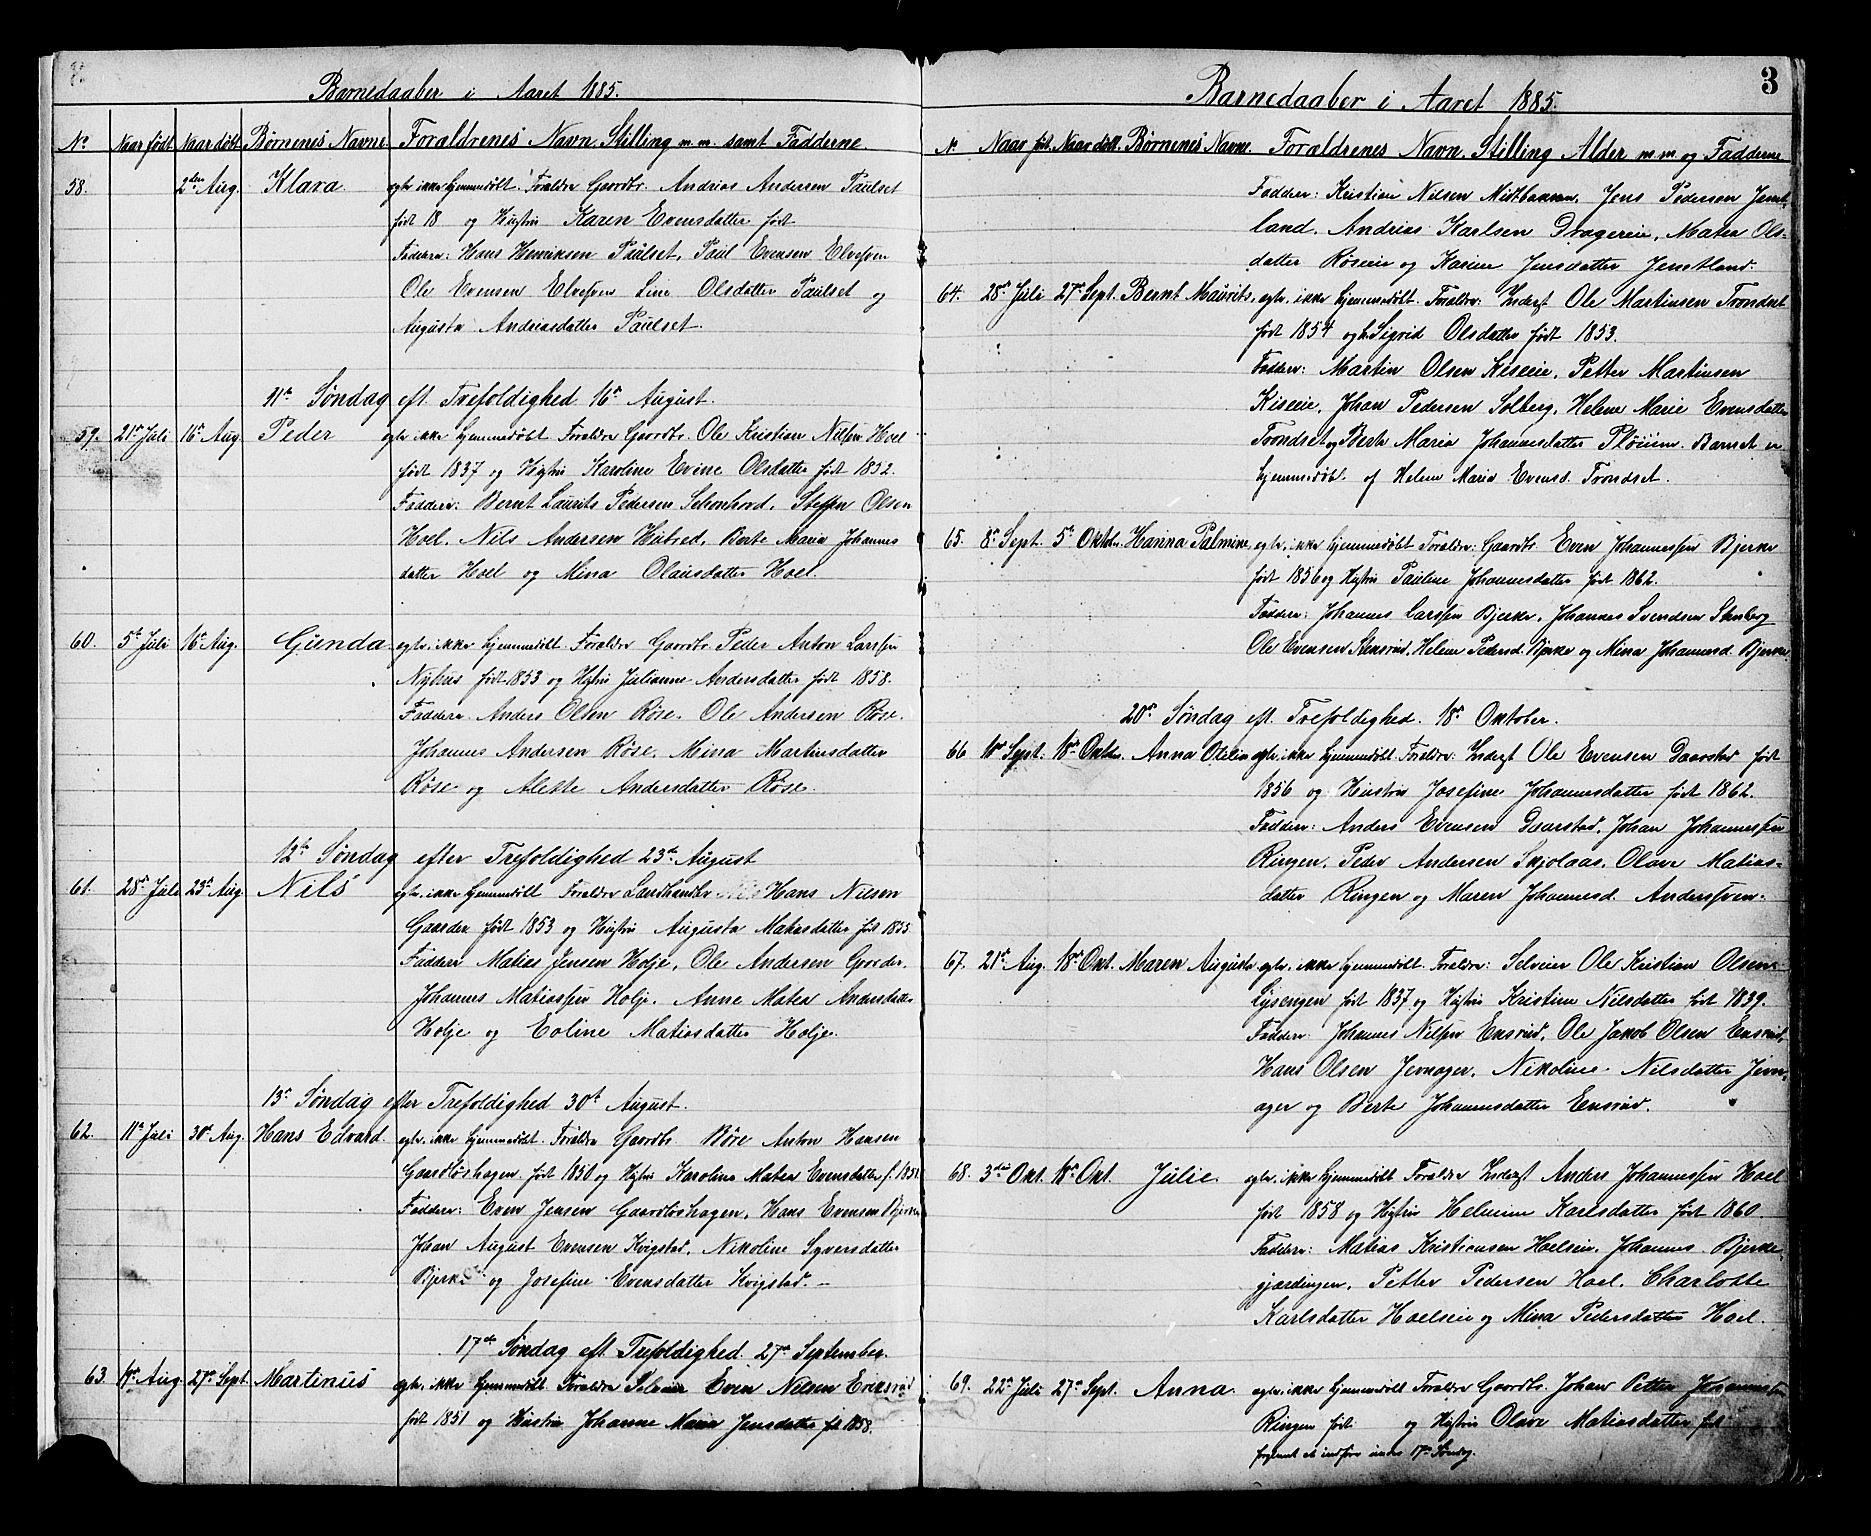 Barnedaaber i Aaret 1885.
No Naar født Naar døbt Børnenes Navne Forældrenes Navn Stilling m m. samt Fadderne
58. 2den Aug. Klara egte ikke hjemmedøbt. Forældre Gaardbr. Andrias Andersen Paulset
født 18 og Hustru Karen Evensdatter født
Faddere: Hans Henriksen Paulset, Paul Evensen Elvespen
Ole Evensen Elvespen Line Olsdatter Paulset og
Augusta Andriasdatter Paulset.
11te Søndag eft. Trefoldighed 16de August.
59. 21de Juli 16de Aug Peder egte ikke hjemmedøbt Forældre Gaardbr. Ole Kristian Nilsen Hoel
født 1837 og Hustru Karoline Evine Olsdatter født 1852.
Faddere: Bernt Laurits Pedersen Schonhovd, Steffen Olsen
Hoel, Nils Andersen Hubred, Berte Maria Johannes
datter Hoel og Mina Olausdatter Hoel.
60. 5te Juli 16de Aug. Gunda egte. ikke hjemmedøbt Forældre Gaardbr. Peder Anton Larssen
Nyhus født 1853 og Hustru Julianne Andersdatter født 1858.
Faddere Anders Olsen Røse. Ole Andersen Røse.
Johannes Andersen Røse, Mina Martinsdatter
Røse og Alette Andersdatter Røse.
12te Søndag efter Trefoldighed 23de August
61. 28de Juli 23de Aug. Nils egte. ikke hjemmedøbt Forældre Landhandler Hans Nilsen
Gaarder født 1853 og Hustru Augusta Matiasdatter født 1855
Faddere Matias Jensen Holje, Ole Andersen Gaarder,
Johannes Matiassen Holje, Anne Matea Andersdatter
Holje og Eoline Matiasdatter Holje.
13de Søndag efter Trefoldighed 30te August.
62. 11te Juli 30te Aug. Hans Edvard. egte. ikke hjemmedøbt. Forældre Gaardbr. Børe Anton Hansen
Gaardløshagen født 1850 og Hustru Karoline Matea Evensdatter f. 1851.
Faddere: Even Jensen Gaardløshagen, Hans Evensen Bjerke
Johan August Evensen Kvigstad, Nikoline Syversdatter
Bjerke og Josefine Evensdatter Kvigstad.
17de Søndag eft. Trefoldighed 27de September.
63. Aug. 27de Sept. Martinus egte. ikke hjemmedøbt Forældre Selveier Even Nilsen Eriksrud
født 1851 og Hustru Johanne Maria Jensdatter født 1858.
3
Barnedaaber i Aaret 1885.
No Naar født. Naar døbt. Børnenes Navne. Forældrenes Navn. Stilling Alder m.m og Fadderne
Faddere: Kristian Nilsen Midtbakken, Jens Pedersen Jemt-
land, Andrias Karlsen Dragereie, Matea Ols-
datter Røseeie og Karine Jensdatter Jemtland.
64. 28de Juli 27de Sept. Bernt Maurits. egte. ikke hjemmedøbt. Forældre: Inderst Ole Martinsen Trondset
født 1854 og h. Sigrid Olsdatter født 1853.
Faddere: Martin Olsen Kiseeie, Petter Martinsen
Kiseeie, Johan Pedersen Solberg, Helene Marie Evensdatter
Trondset og Berte Maria Johannesdatter Pløiten. Barnet er
hjemmedøbt af Helene Marie Evensd. Trondset.
65. 8de Sept. 5te Oktober Hanna Palmine. egte. ikke hjemmedøbt Forældre: Gaardbr. Even Johannessen Bjerke
født 1856 og Hustru Pauline Johannesdatter født 1862.
Faddere: Johannes Larssen Bjerke, Johannes Svendsen Stenberg
Ole Evensen Stensrud, Helene Pedersd. Bjerke og Mina Johannesd. Bjerke
20de Søndag eft. Trefoldighed. 18de Oktober.
66 10de Sept. 18de Oktober Anna Otelia egte. ikke hjemmedøbt Forældre: Inderst Ole Evensen Daarstad født
1856 og Hustru Josefine Johannesdatter født 1862.
Faddere: Anders Evensen Daarstad, Johan Johannessen
Ringen, Peder Andersen Skjolaas, Olave Matias-
datter Ringen og Maren Johannesd. Anderssven.
67. 21de Aug. 18de Okt. Maren Auguste egte. ikke hjemmedøbt. Forældre: Selveier Ole Kristian Olsen
Lysengen født 1837 og Hustru Kristine Nilsdatter født 1839.
Faddere Johannes Nilsen Ensrud, Ole Jakob Olsen Ensrud,
Hans Olsen Jevnager, Nikoline Nilsdatter Jevn-
ager og Berte Johannesdatter Ensrud.
68. 3die Okt. 18de Okt. Julie egte. ikke hjemmedøbt Forældre Inderst Anders Johannessen Hoel
født 1858 og Hustru Helmine Karlsdatter født 1860
Faddere: Matias Kristiansen Hoelseie, Johannes Bjerke-
gjærdingen, Petter Pedersen Hoel, Charlotte
Karlsdatter Hoelseie og Mina Pedersdatter Hoel.
69. 22de Juli 27de Sept. Anna egte. ikke hjemmedøbt Forældre Gaardbr. Johan Petter Johannessen
Ringen født og Hustru Olave Matiasdatter født
forglemt at indføre under 17de Søndag.